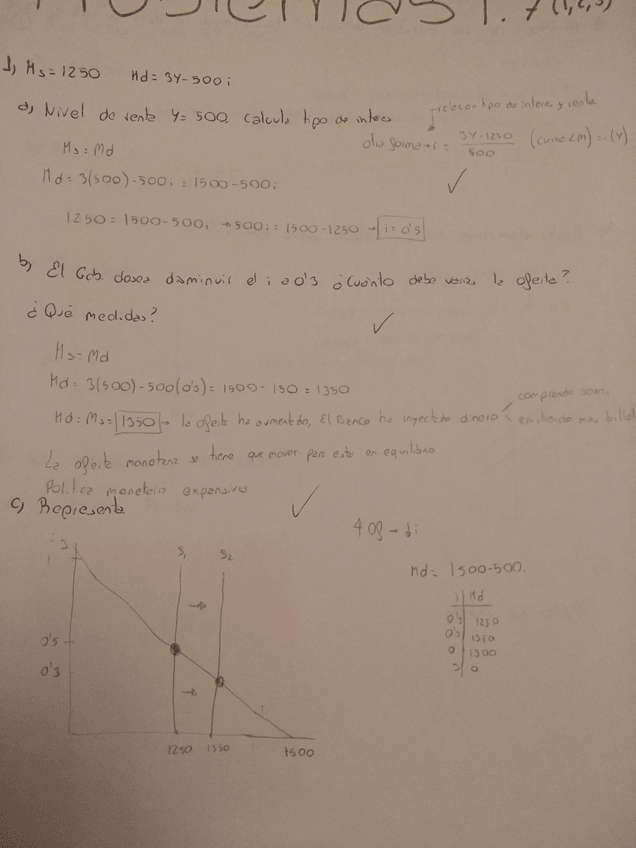 Problemas 1. 7 (1,2,3)
1) Ms=1250 Md= 3Y-500i
a) Nivel de renta Y= 500. Calcula tipo de interes
relacion tipo de interes y renta
otra forma → i = 3Y-1250 / 500 (curva LM) = i(Y)
Ms = Md
Md = 3(500)-500i = 1500-500i
1250 = 1500-500i → 500i = 1500-1250 → i = 0'5
b) El Gob. desea disminuir el i a 0'3 ¿Cuánto debe variar la oferta?
¿Qué medidas?
Ms = Md
Md = 3(500)-500(0'3) = 1500-150 = 1350
Md = Ms = 1350 → la oferta ha aumentado, El Banco ha inyectado dinero
comprando
emitiendo mas billetes
La oferta monetaria se tiene que mover para estar en equilibrio
Politica monetaria expansiva
c) Representa
↑Of → ↓i
Md = 1500-500i
i Md
0'5 1250
0'3 1350
0 1500
3 0
i 3
S1 S2
0'5
0'3
1250 1350 1500